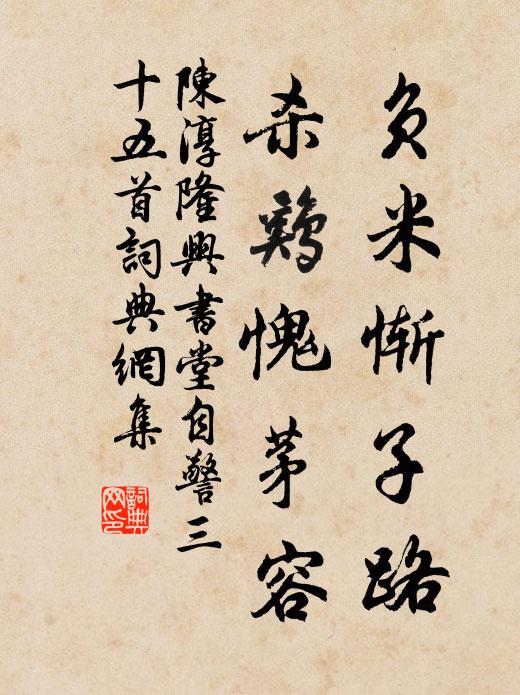 负米惭子路
杀鸡愧茅容
陳淳隆興書堂自警三
十五首詞典網集
詞典网印